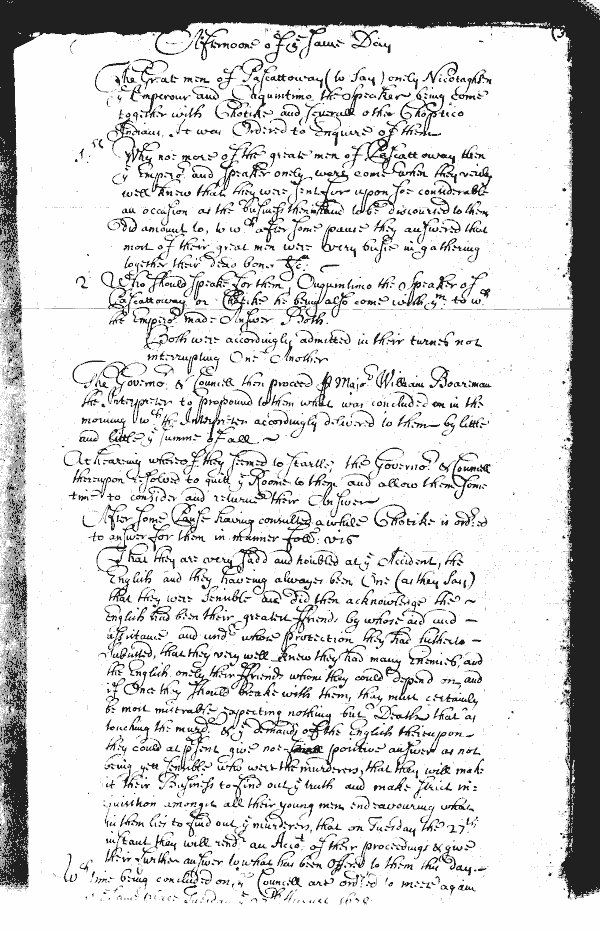 Afternoone of ye same Day
The Great men of Pascattoway (to say) onely Nicotaghsen
ye Emperour and Aquintimo the speaker being come
together with Chotike and severall other Choptico
Indians, it was Ordered to Enquire of them
1st Why noe more of the great men of Pascattoway then
ye Emperor and speaker onely were come when they really
well knew that they were sent for upon soe considerable
an occasion as the business themselves and to be discoursed to them
did amount to, to wch after some pause they answered that
most of their great men were very busie in gathering
together their dead bones &c.
2 Who should speake for them Ouquintimo the speaker of
Pascattoway or Chotike he being also come with ym to wch
the Emperor made Answer Both.
Both were accordingly admitted in their turnes not
interrupting One Another
The Governor & Councell then proceed p Major William Boareman
the Interpreter to propound to them what was concluded on in the
morning wch the Interpreter accordingly delivered to them by little
and little ye summe of all
At heareing whereof they seemed to startle, the Governor & Councell
thereupon resolved to quitt ye Roome to them and allow them some
time to consider and returne their Answer
After some Pause haveing consulted a while Chotike is ordred
to answer for them in manner foll: viz
That they are very sadd and troubled at ye Accident, the
English and they haveing alwayes been One (as they say)
that they were sensible and did then acknowledge the
English had been their greatest ffriends by whose aid and
assistance and undr whose protection they had hitherto
subsisted, that they very well knew they had many Enemies, and
the English onely their ffriends whom they could depend on, and
if Once they should breake with them, they must certainly
be most miserable expecting nothing but Death, that as
touching the murdr & ye demands of the English thereupon
they could at psent give noe positive answer as not
being yett sensible who were the murderers, that they will make
it their Business to find out ye truth and make strict in-
quisition amongst all their young men endeavouring what
in them lies to find out ye murderers, that on Tuesday the 27th
instant they will rendr an Accot of their proceedings & give
their further answer to what has been offered to them this day.
Wch time being concluded on, ye Councell are ordred to meet again
same place Tuesday ye 27th August